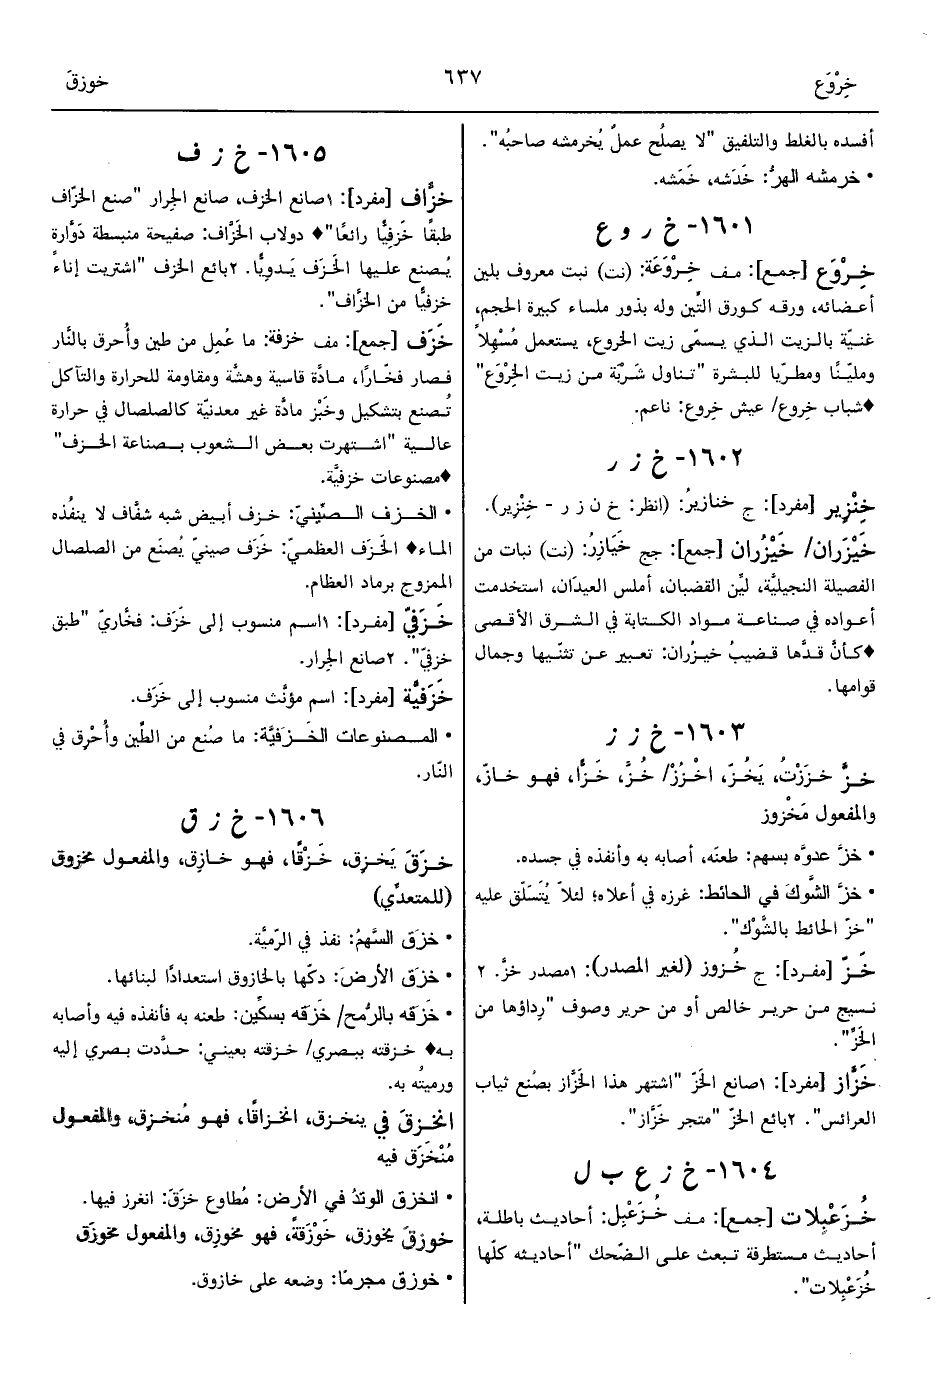 خِرْوَع
٦٣٧
خوزقَ
أفسده بالغلط والتلفيق "لا يصلُح عملٌ يُخرمشه صاحبُه".
• خرمشه الهرُّ: خَدَشه، خَمَشه.
١٦٠١- خ ر و ع
خِرْوَع [جمع]: مف خِرْوَعَة: (نت) نبت معروف بلين
أعضائه، ورقه كورق التِّين وله بذور ملساء كبيرة الحجم،
غنيّة بالزيت الذي يسمّى زيت الخروع، يستعمل مُسْهِلاً
ومليّنًا ومطريًا للبشرة "تناول شَرْبّة من زيت الخِرْوَع"
♦شباب خِروع/ عيش خِروع: ناعم.
١٦٠٢- خ ز ر
خِنْزير [مفرد]: ج خنازيرُ: (انظر: خ ن ز ر - خِنْزير).
خَيْزَران/ خَيْزُران [جمع]: جج خَيَازِرُ: (نت) نبات من
الفصيلة النجيليَّة، ليِّن القضبان، أملس العيدَان، استخدمت
أعواده في صناعة مواد الكتابة في الشرق الأقصى
♦كأنَّ قدَّها قضيبُ خيزران: تعبير عن تثنّيها وجمال
قوامها.
١٦٠٣- خ ز ز
خزَّ خزَزْتُ، يَخُزّ، اخْزُزْ/ خُزَّ، خَزًّا، فهو خازّ،
والمفعول مَخْزوز
• خزَّ عدوَّه بسهم: طعنَه، أصابه به وأنفذه في جسده.
• خزَّ الشَّوكَ في الحائط: غرزه في أعلاه؛ لئلاّ يُتَسلّق عليه
"خزّ الحائط بالشَّوْك".
خَزّ [مفرد]: ج خُزوز (لغير المصدر): ١مصدر خزَّ. ٢
نسيج من حرير خالص أو من حرير وصوف "رِداؤها من
الخَزِّ".
خَزَّاز [مفرد]: ١صانع الخَزّ "اشتهر هذا الخَزَّاز بصُنع ثياب
العرائس". ٢بائع الخَزّ "متجر خَزَّاز".
١٦٠٤- خ ز ع ب ل
خُزَعْبِلات [جمع]: مف خُزَعْبِل: أحاديث باطلة،
أحاديث مستطرفة تبعث على الضّحك "أحاديثه كلّها
خُزَعْبِلات".
١٦٠٥- خ ز ف
خزَّاف [مفرد]: ١صانع الخزف، صانع الجِرار "صنع الخزّاف
طبقًا خَزفيًّا رائعًا"♦ دولاب الخَزَّاف: صفيحة منبسطة دَوَّارة
يُصنع عليها الخَزَف يَدويًّا. ٢بائع الخزف "اشتريت إناءً
خزفيًّا من الخزَّاف".
خَزَف [جمع]: مف خزفة: ما عُمِل من طين وأُحرق بالنَّار
فصار فخّارًا، مادَّة قاسية وهشَّة ومقاومة للحرارة والتآكل
تُصنع بتشكيل وخَبْز مادَّة غير معدنيّة كالصلصال في حرارة
عالية "اشتهرت بعض الشعوب بصناعة الخزف"
♦مصنوعات خزفيَّة.
• الخزف الصِّينيّ: خزف أبيض شبه شفَّاف لا ينفُذه
الماء♦ الخَزَف العظميّ: خَزَف صينيّ يُصنَع من الصلصال
الممزوج برماد العظام.
خَزَفيّ [مفرد]: ١اسم منسوب إلى خَزَف: فخّاريّ "طبق
خزفيّ". ٢صانع الجِرار.
خَزَفيَّة [مفرد]: اسم مؤنَّث منسوب إلى خَزَف.
• المصنوعات الخَزَفيَّة: ما صُنع من الطِّين وأُحْرِق في
النّار.
١٦٠٦- خ ز ق
خزَقَ يَخزِق، خَزْقًا، فهو خازِق، والمفعول مخزوق
(للمتعدِّي)
• خزَق السَّهمُ: نفذ في الرّميَّة.
• خزَق الأرضَ: دكّها بالخازوق استعدادًا لبنائها.
• خَزَقه بالرُّمح/ خَزَقه بسكِّين: طعنه به فأنفذه فيه وأصابه
به♦ خزقته ببصري/ خزقته بعيني: حدَّدت بصري إليه
ورميتُه به.
انخزقَ في ينخزق، انخزاقًا، فهو مُنخزِق، والمفعول
مُنْخَزَق فيه
• انخزق الوتدُ في الأرض: مُطاوع خزَقَ: انغرز فيها.
خوزقَ يخوزق، خَوْزَقةً، فهو مخوزِق، والمفعول مخوزَق
• خوزق مجرمًا: وضعه على خازوق.